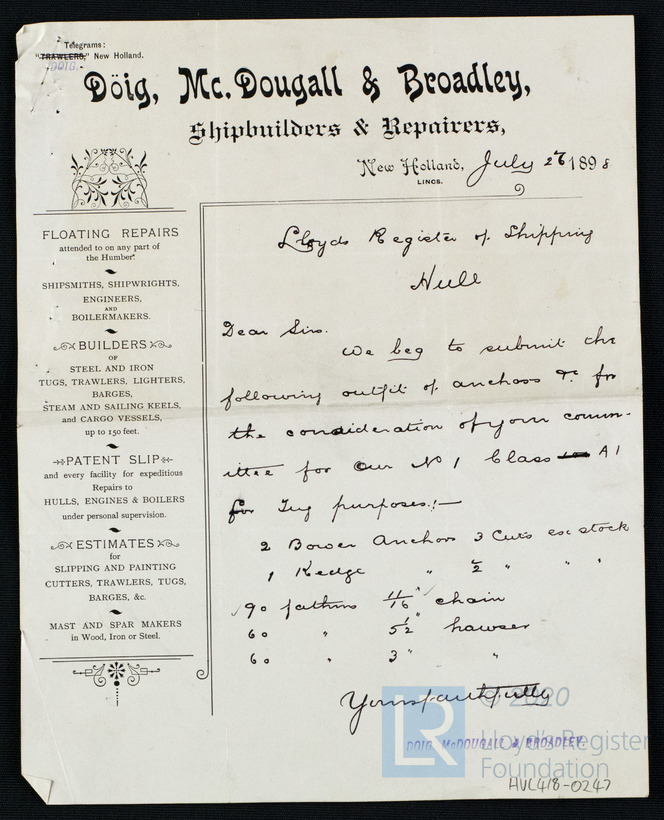 Telegrams:
"TRAWLERS," New Holland.
DOIG.
Doig, Mc.Dougall & Broadley,
Shipbuilders & Repairers,
New Holland, July 27 1898
LINCS.
FLOATING REPAIRS
attended to on any part of
the Humber.
SHIPSMITHS, SHIPWRIGHTS,
ENGINEERS,
AND
BOILERMAKERS.
BUILDERS
OF
STEEL AND IRON
TUGS, TRAWLERS, LIGHTERS,
BARGES,
STEAM AND SAILING KEELS,
and CARGO VESSELS,
up to 150 feet.
PATENT SLIP
and every facility for expeditious
Repairs to
HULLS, ENGINES & BOILERS
under personal supervision.
ESTIMATES
for
SLIPPING AND PAINTING
CUTTERS, TRAWLERS, TUGS,
BARGES, &c.
MAST AND SPAR MAKERS
in Wood, Iron or Steel.
Lloyds Register of Shipping
Hull
Dear Sirs.
We beg to submit the
following outfit of anchors &c for
the consideration of your comm-
ittee for our No 1 Class A1
for Tug purposes:—
2 Bower Anchors 3 Cwts ex stock
1 Kedge " ½ " " "
90 fathms 11/16" chain
60 " 5½ hawser
60 " 3" "
Yours faithfully
DOIG, McDOUGALL & BROADLEY.
LR
© 2020
Lloyd's Register
Foundation
HUL418-0247